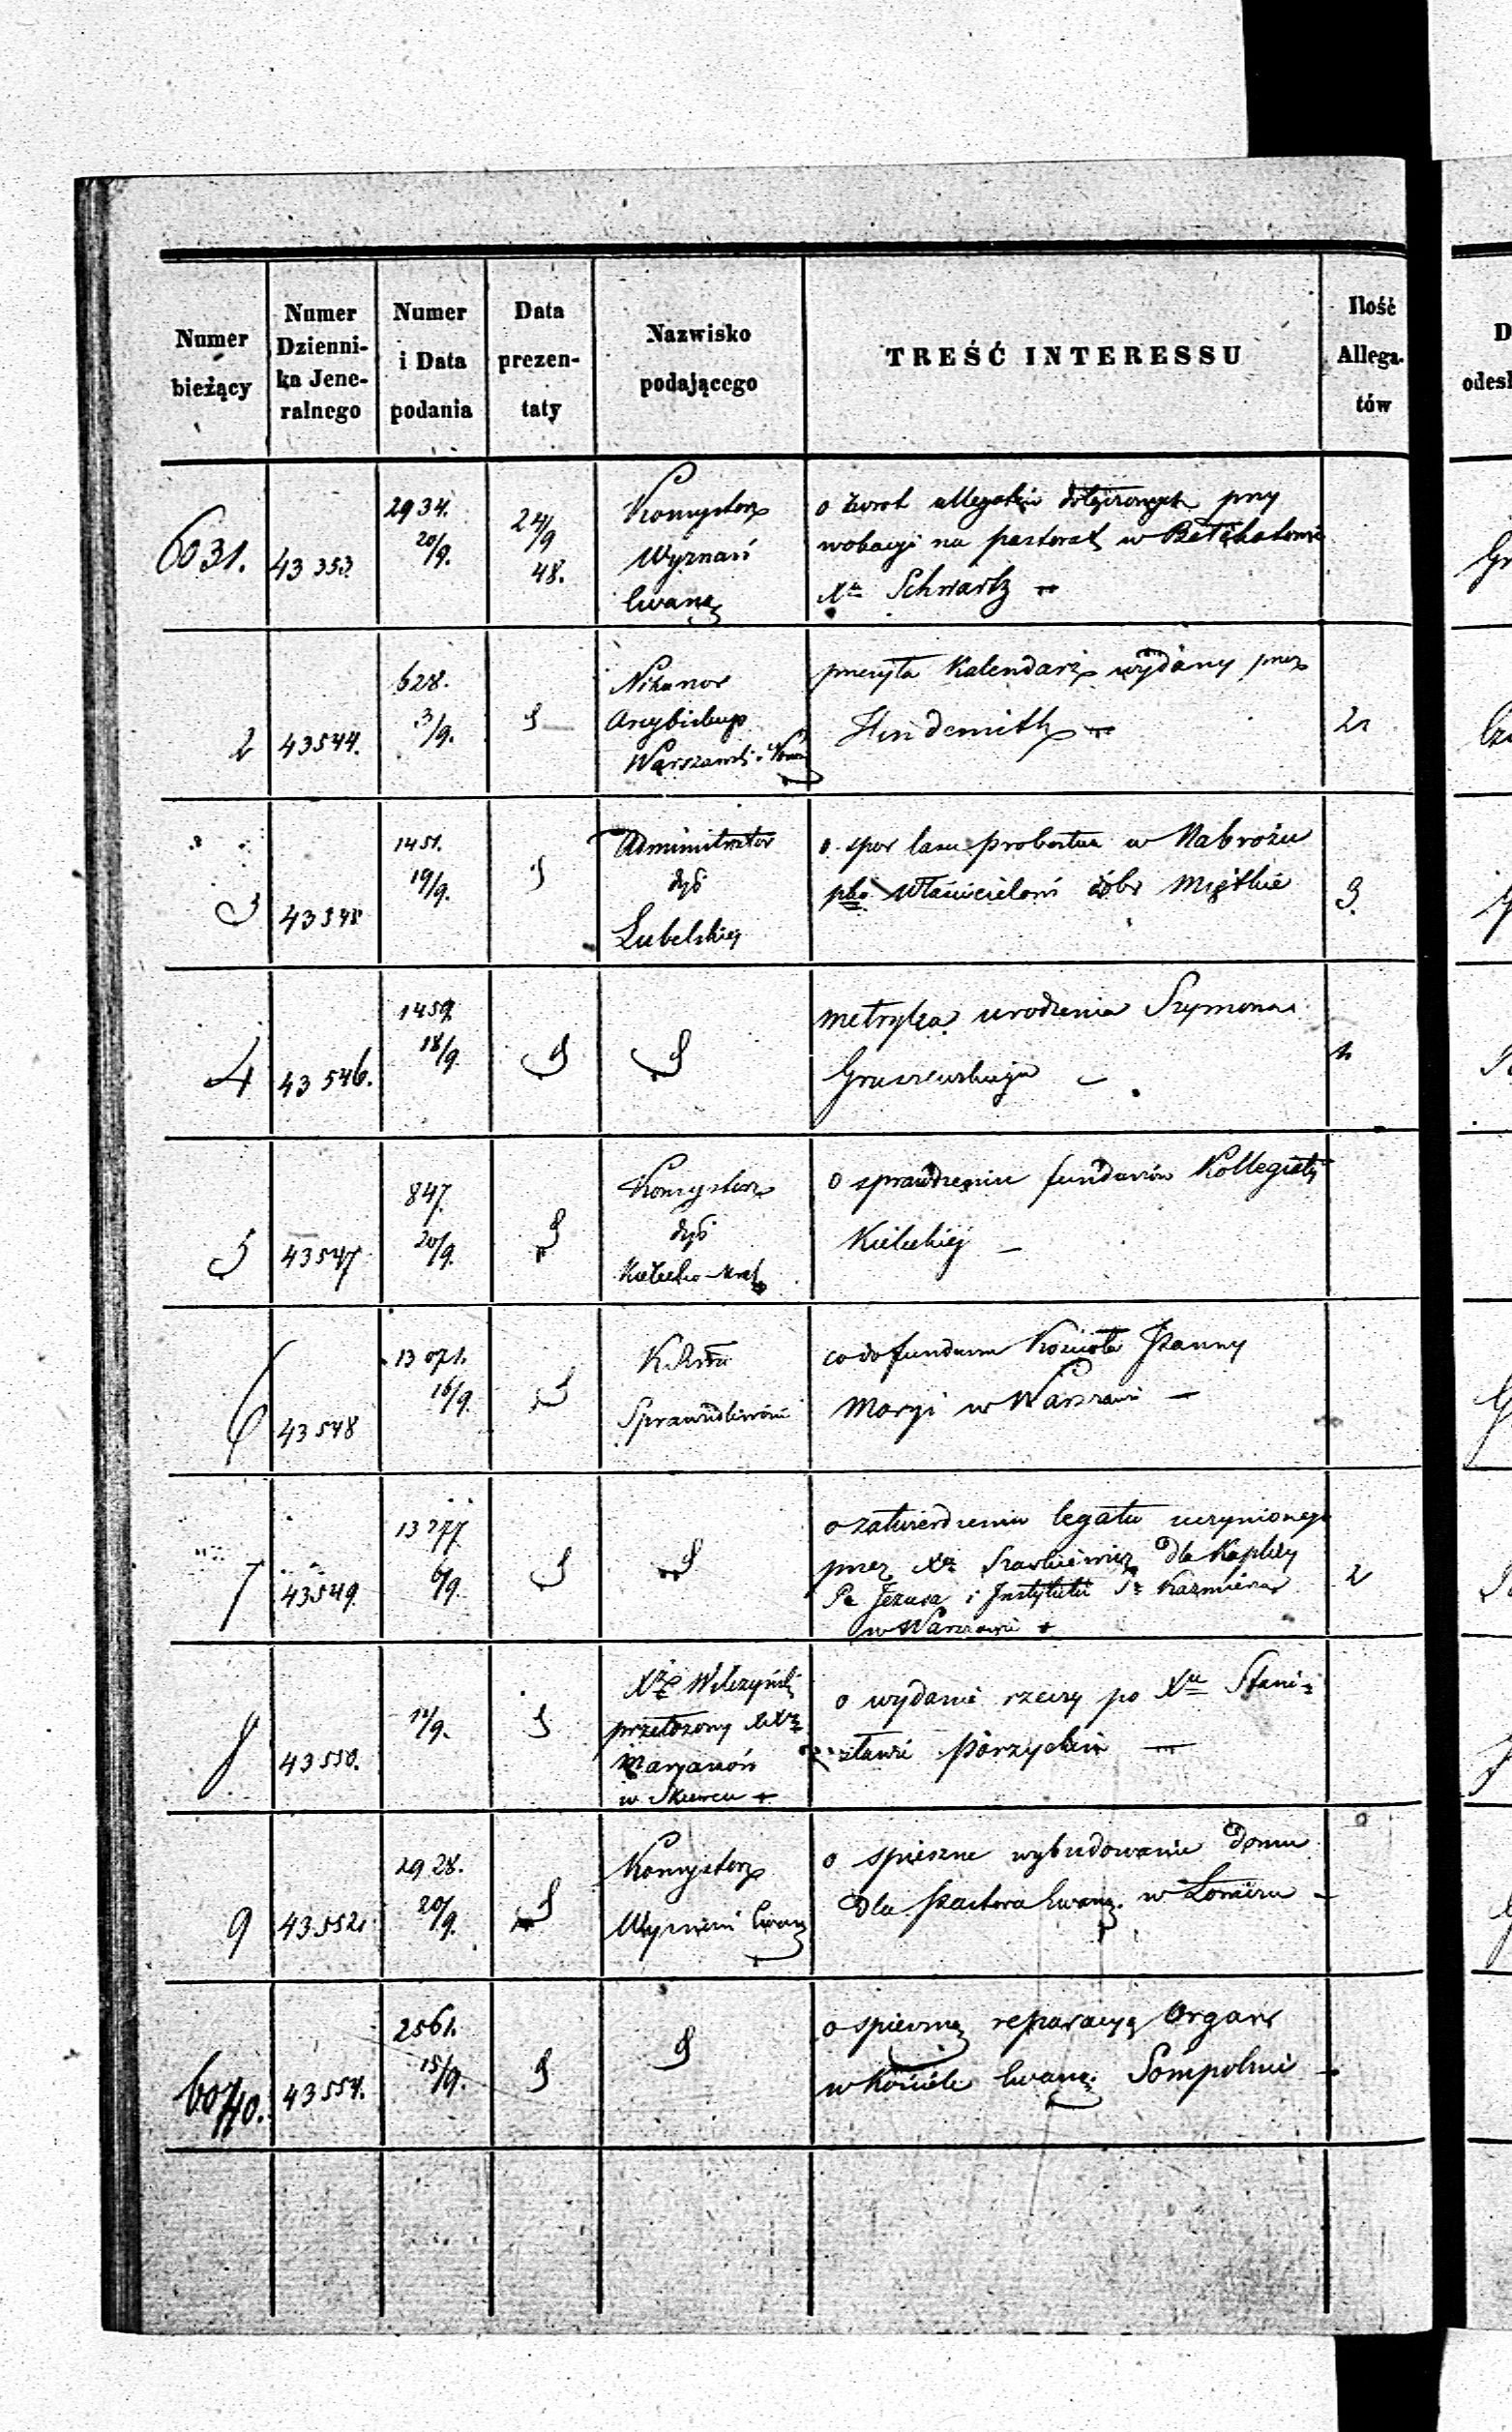 Numer bieżący
Numer Dzienni-ka Jene-ralnego
Numer i Data podania
Data prezen-taty
Nazwisko podającego
TREŚĆ INTERESSU
Ilość Allega-tów
6031.
43 353
2934.
20/9.
24/9
48.
Konsystorz
Wyznań
Ewang
o zwrot allegatów dołączonych przy
wokacyi na pastora w Bełchatowie
Xa Schwartz
2
43544.
628.
3/9.
Nikanor
Arcybiskup
Warszawski i
przesyła Kalendarz wydany przez
Hindemith
2
3
43548
1451.
19/9.
Administrator
dyć
Lubelskiej
o spor lasu probostwa w Nabrożu
pko właścicielom dóbr Miętkie
3.
4
43 546.
1459.
18/9.
metryka urodzenia Szymona
Gruszewskiego
5
43547
847.
20/9.
Konsystorz
dyć
Kielecko-Krak
o sprawdzeniu funduszów Kollegiaty
Kieleckiej
6
43548
13 071.
16/9.
Sprawiedliwości
co do funduszu Kościoła Panny
Maryi w Warszawie
7
43549
13277.
6/9.
o zatwierdzeniu legatu uczynionego
przez Xa dla Kaplicy
Pa Jezusa i Instytutu Sgo Kazmierza
w Warszawie
2
8
43550.
12/9.
Xdz Wilczyński
przełożony XXzy
Maryanów
w Skurcu
o wydanie rzeczy po Xdzu Stani-
sławie Porzyckim
9
43552
2928.
20/9.
Konsystorz
Wyznań Ewang
o spieszne wybudowanie domu
dla pastora Ewang. w Łomży
6040.
43554.
2561.
15/9.
o spieszną reparacyą Organu
w Kościele Ewang. Sompolnie